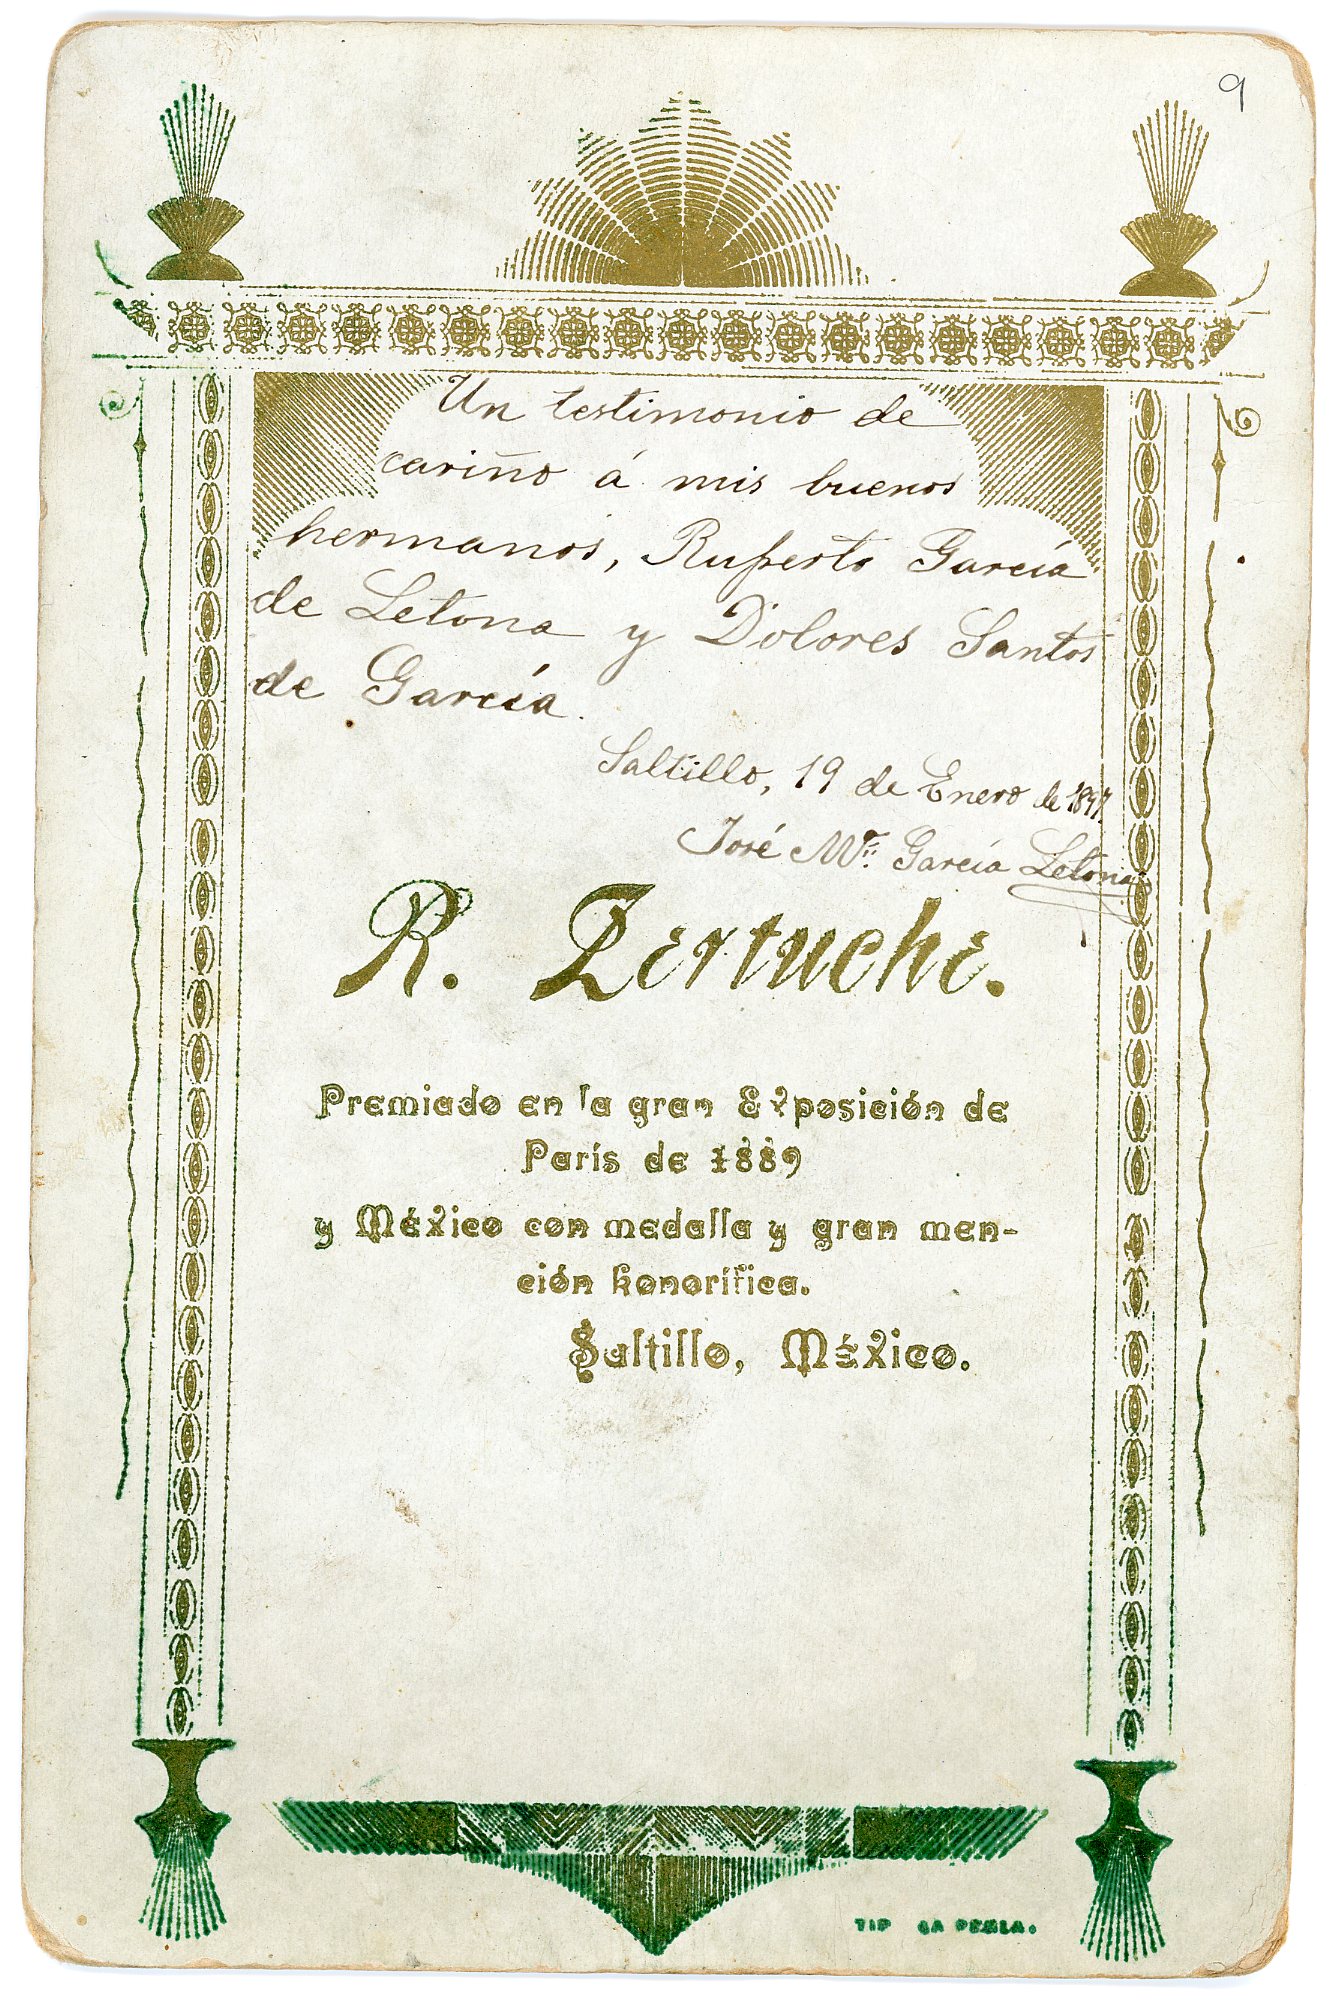 9
Un testimonio de
cariño á mis buenos
hermanos, Ruperto García
de Letona y Dolores Santos
de García.
Saltillo, 19 de Enero de 1897.
José Mª García Letona
R. Zertuche.
Premiado en la gran Exposición de
París de 1889
y México con medalla y gran men-
ción honorífica.
Saltillo, México.
TIP LA PERLA.